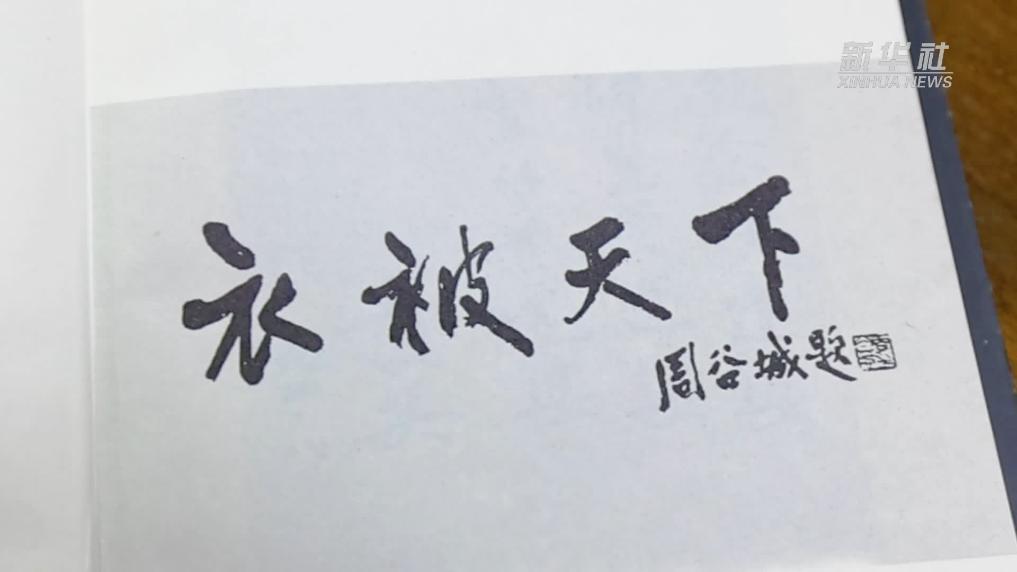 新华社
XINHUA NEWS
衣被天下
周谷城题